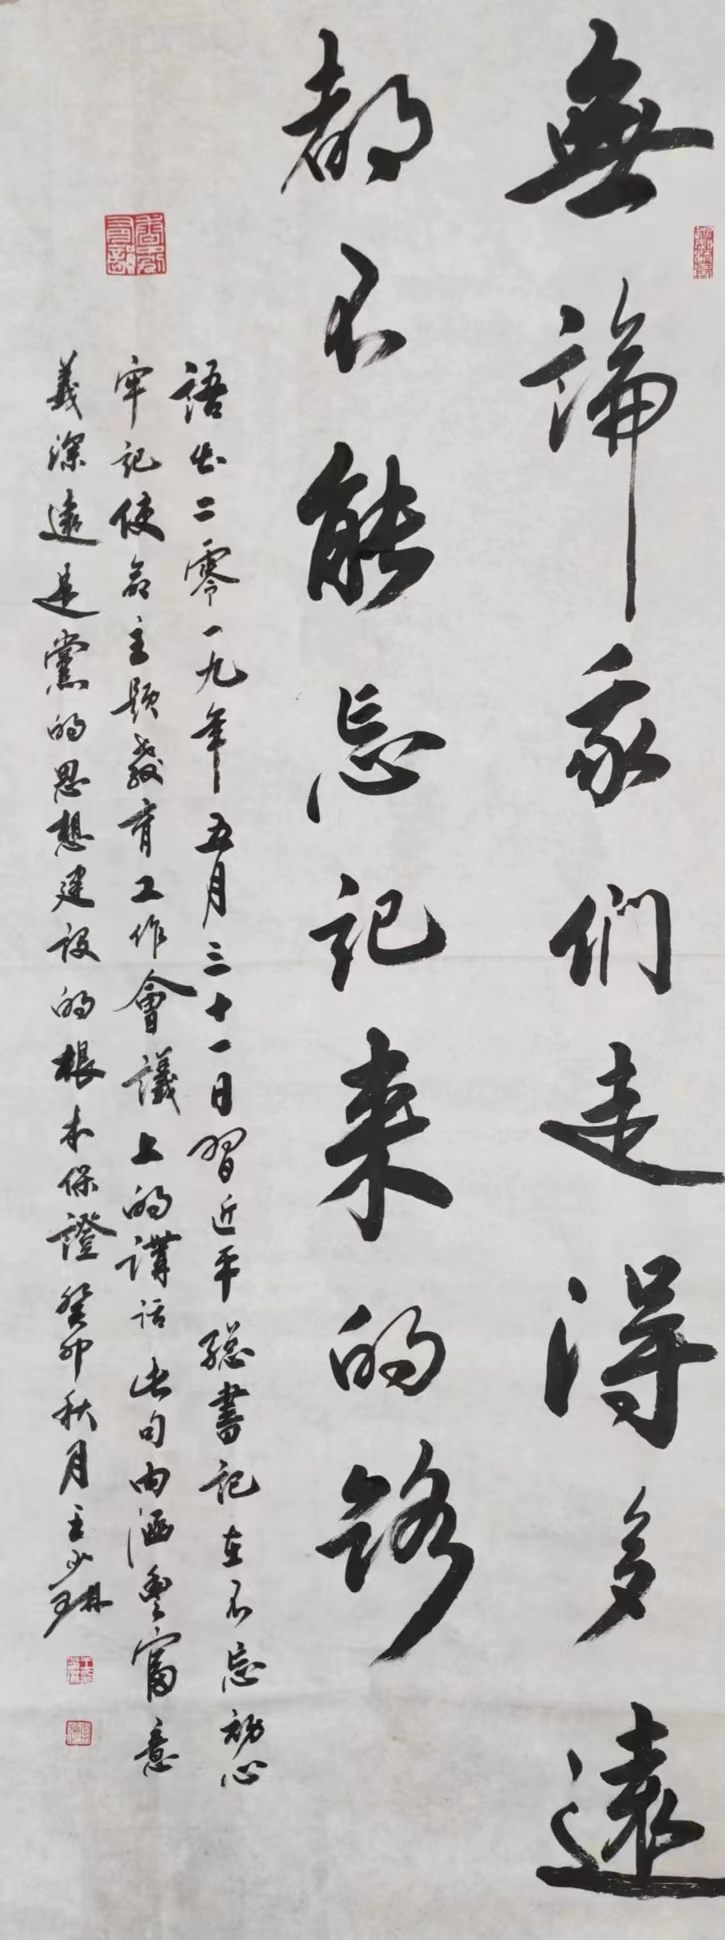 無論我們走得多遠
都不能忘記来的路
語出二零一九年五月三十一日習近平總書記在不忘初心
牢記使命主題教育工作會議上的講話此句内涵豐富意
義深遠是黨的思想建設的根本保證癸卯秋月王少琳